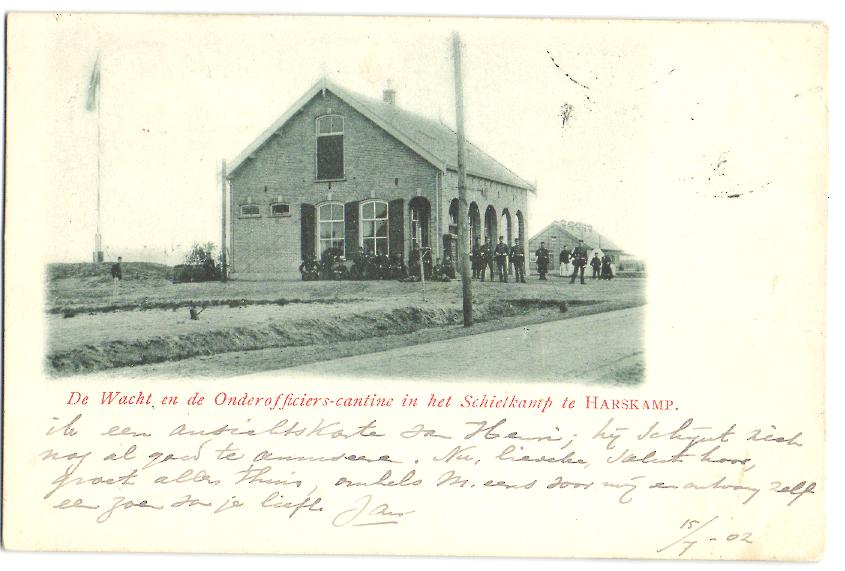 De Wacht en de Onderofficiers-cantine in het Schietkamp te HARSKAMP.
een ansichtskarte van Henri; hij schijnt zich
nog al goed te amuseere. Nu, lieveke, saluut hoor,
groet alles thuis, omhels M. eens voor mij en ontvang zelf
een zoen van je liefh. Jan
15/7 - 02